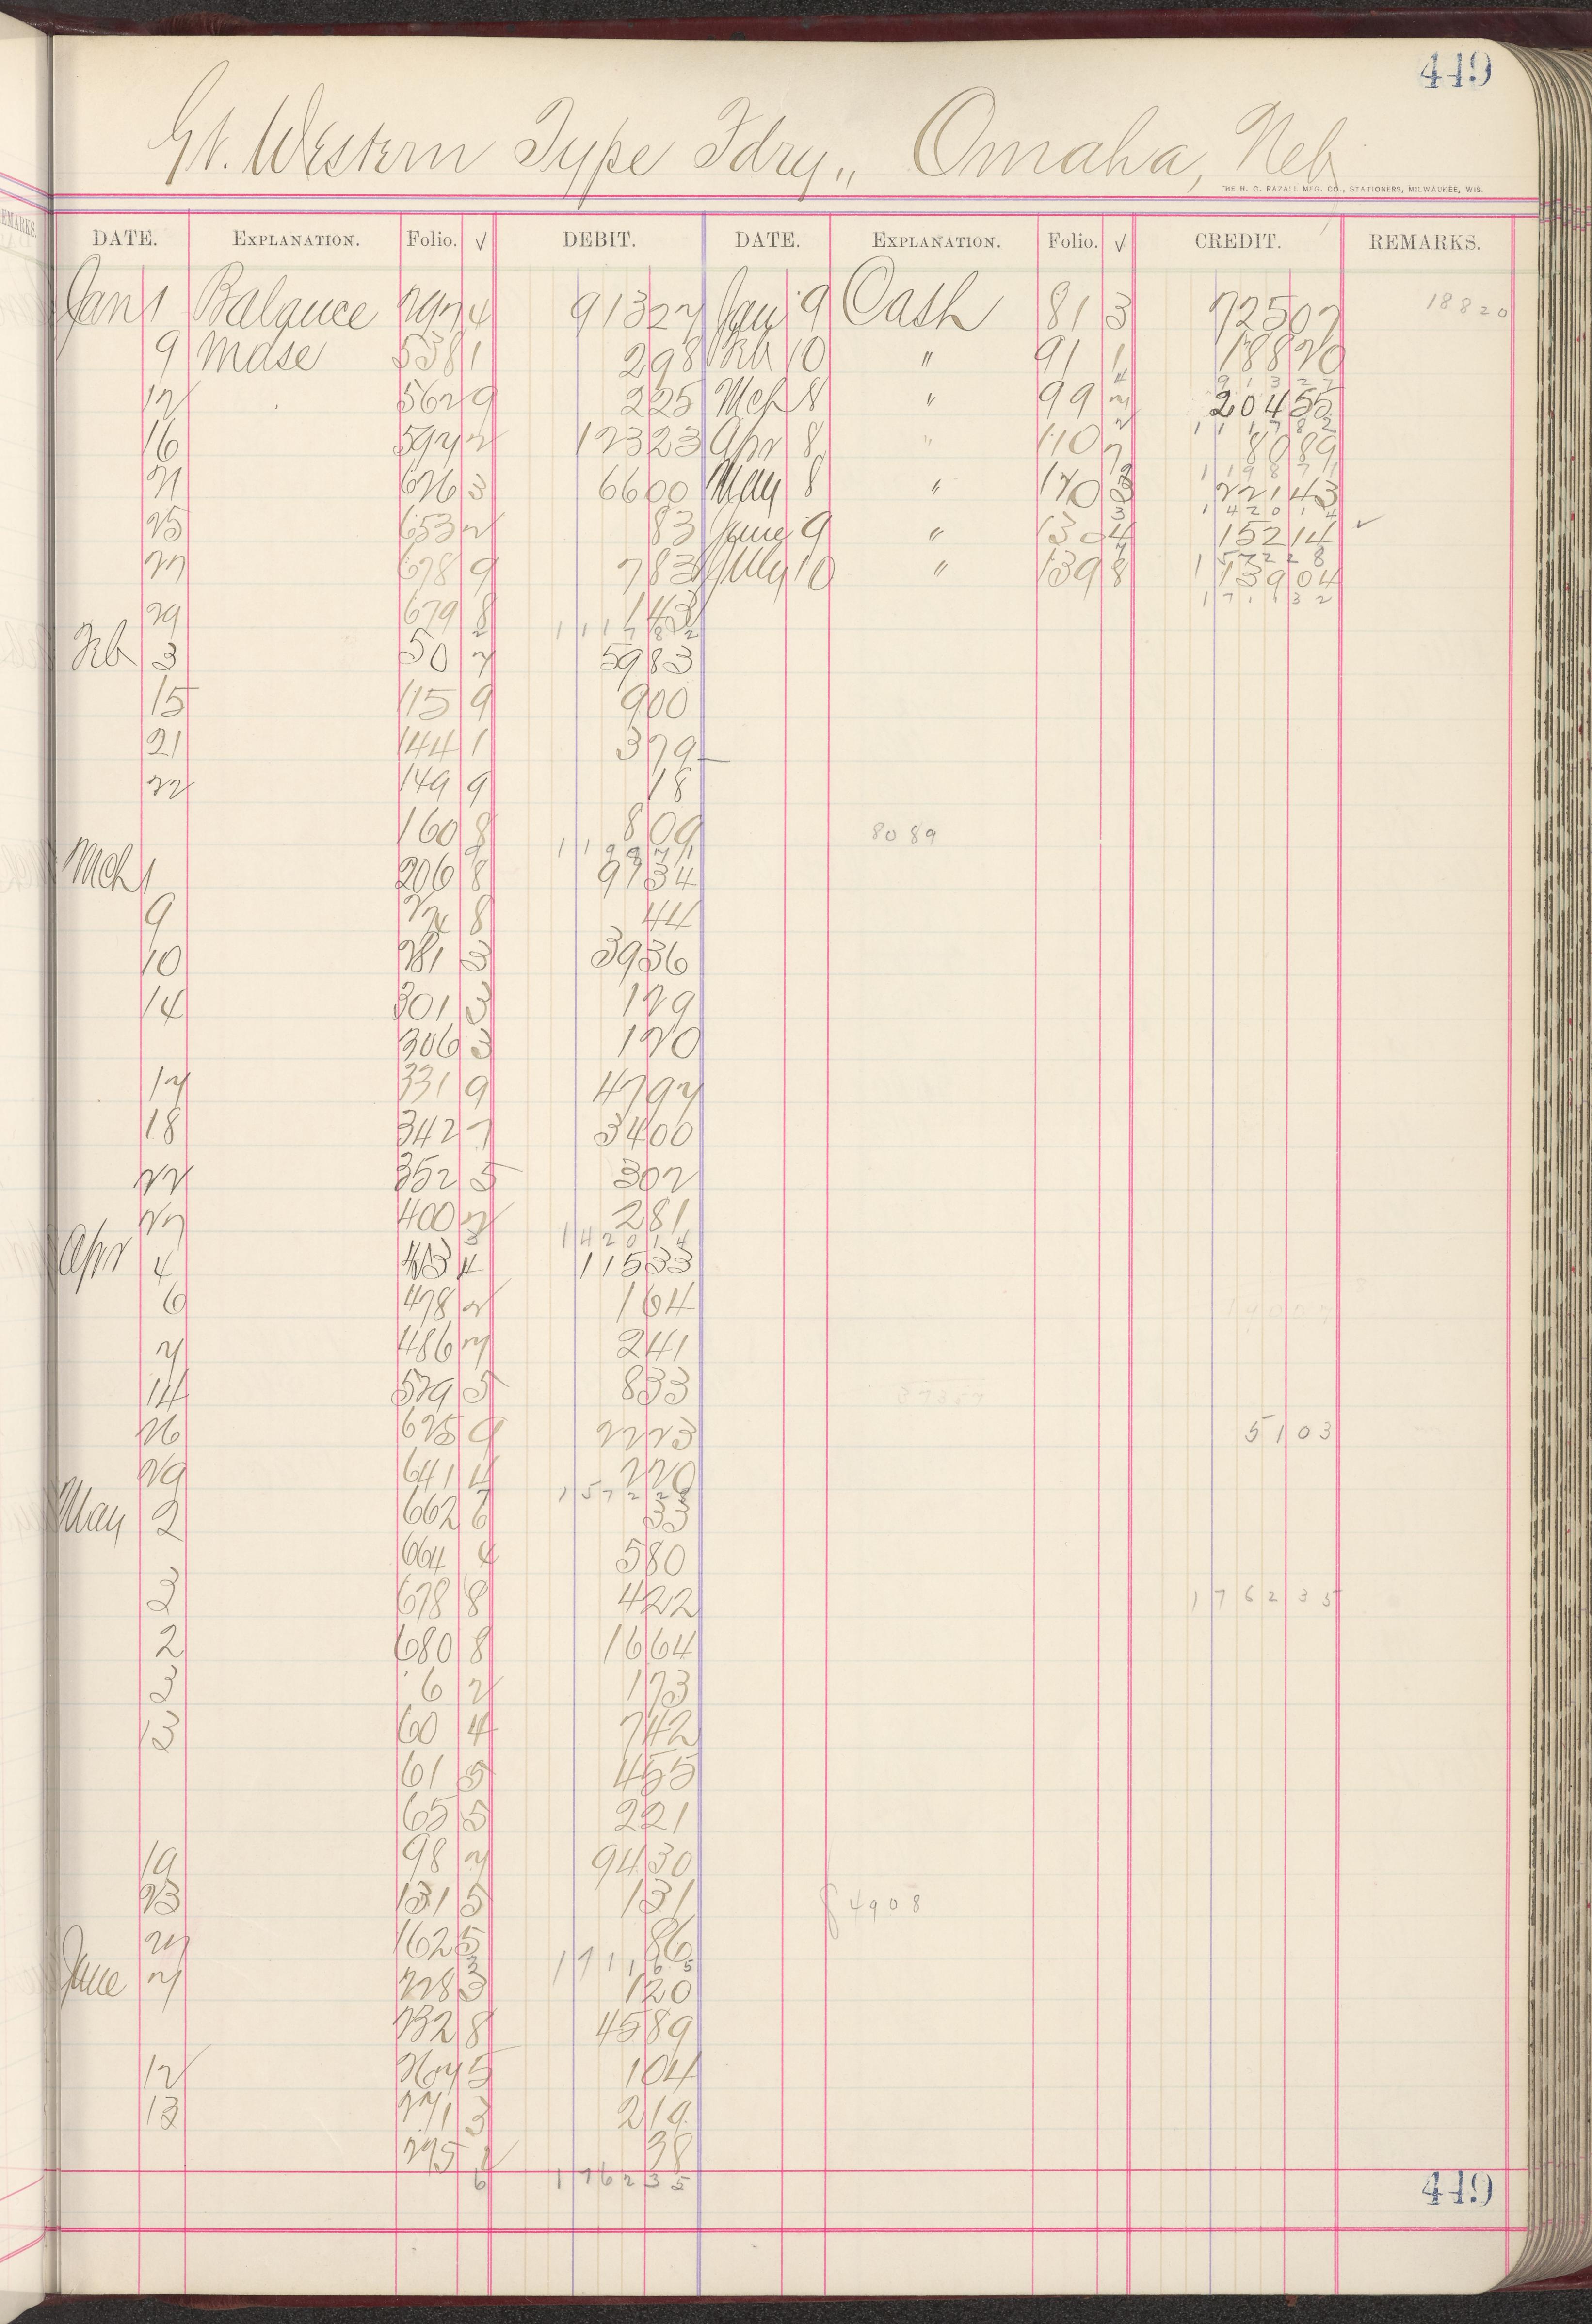 449
Gt. Western Type Fdry,, Omaha, Neb
THE H. C. RAZALL MFG. CO., STATIONERS, MILWAUKEE, WIS.
DATE. EXPLANATION. Folio. √ DEBIT. DATE. EXPLANATION. Folio. √ CREDIT. REMARKS.
Jan 1 Balance 91327 Jan 9 Cash 81 3 72507 18820
9 Mdse 538 1 298 Feb 10 " 91 1 18820
91327
12 562 9 225 Mch 8 " 99 2 20455
111782
16 592 2 12323 Apr 8 " 110 2 8089
119871
21 626 3 6600 May 8 " 120 3 22143
142014
25 653 2 83 June 9 " 130 4 15214 ✓
157228
27 678 9 783 July 10 " 139 8 13904
171132
29 679 8 143
111782
Feb 3 50 7 5983
15 115 9 900
21 144 1 379
22 149 9 18
160 8 809 8089
119871
Mch 1 206 8 9734
9 8 44
10 281 3 3936
14 301 3 129
306 3 120
17 331 9 4797
18 342 7 3400
22 352 5 302
27 400 2 281
142014
Apr 4 11533
6 478 2 164
7 486 7 241
14 579 5 833
26 625 9 2223 5103
29 641 4 220
157228
May 2 662 6 33
664 4 580
2 678 8 422 176235
2 680 8 1664
3 6 2 173
13 60 4 742
61 5 455
65 5 221
19 98 7 9430
23 131 5 131 4908
27 162 5 86
June 7 228 3 120
232 8 4589
12 267 5 104
13 271 3 219
275 38
6 176235
449